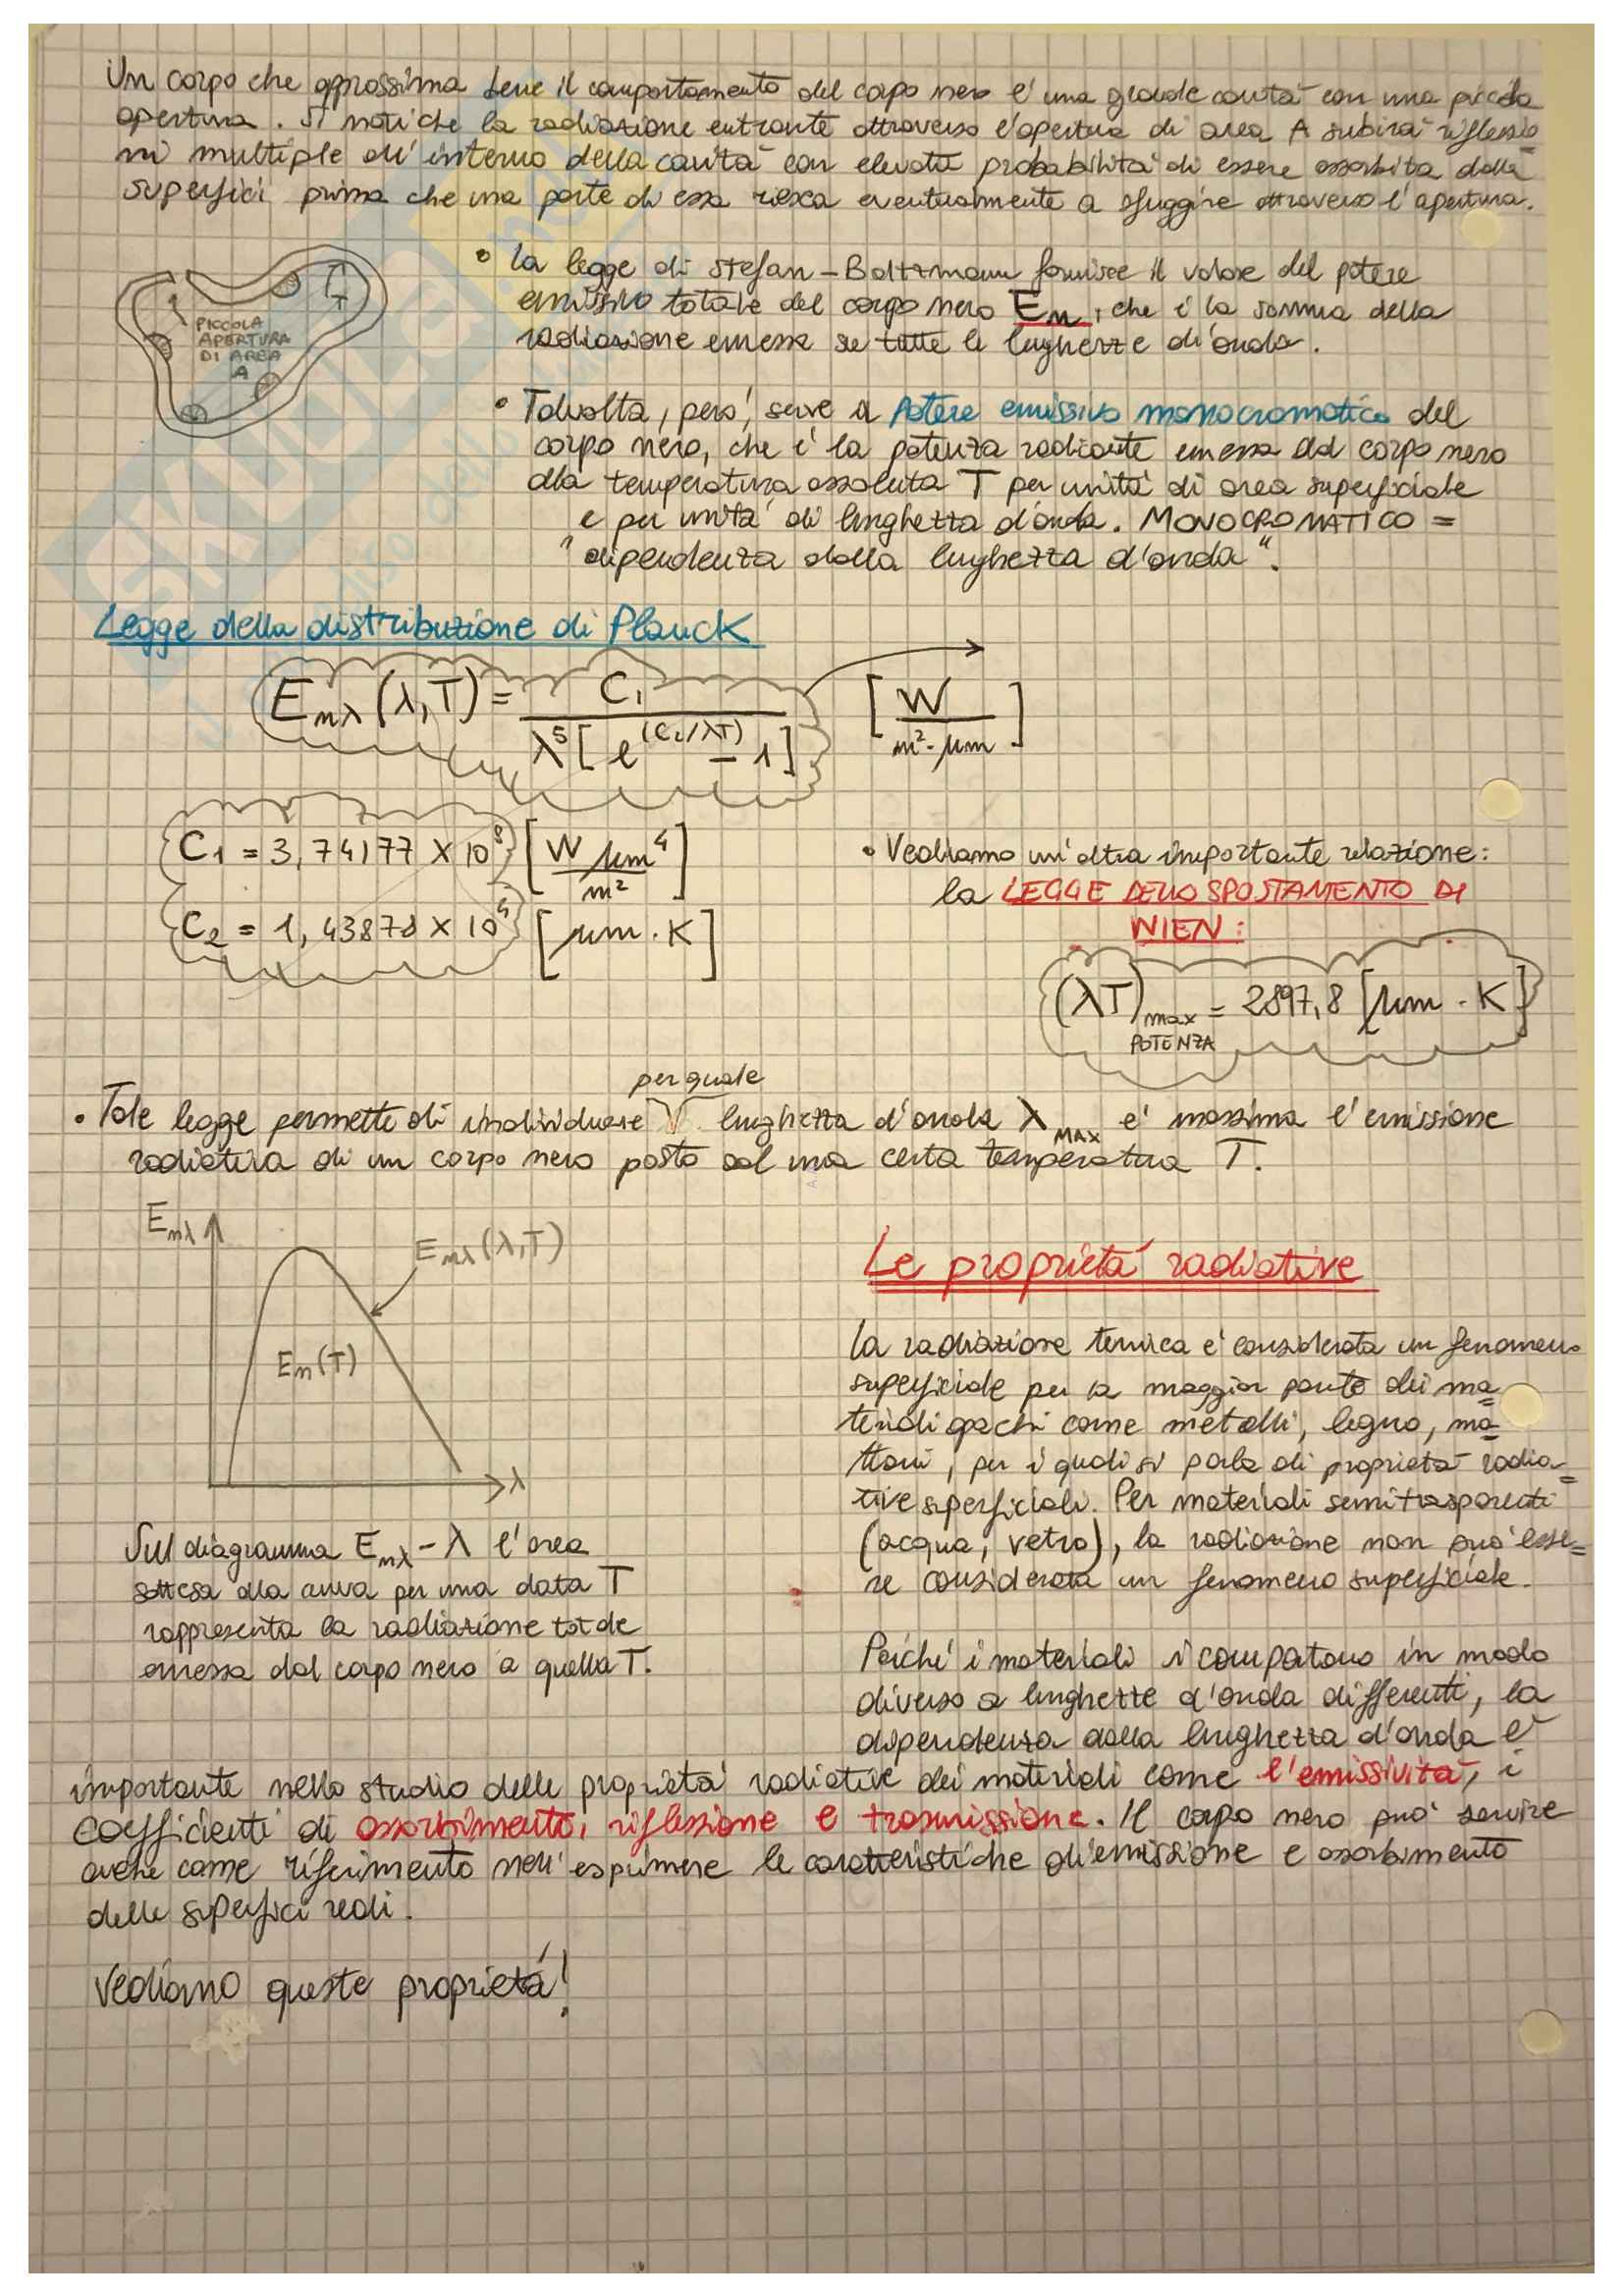 Un corpo che approssima bene il comportamento del corpo nero e' una grande cavità con una piccola
apertura. Si noti che la radiazione entrante attraverso l'apertura di area A subirà riflessio
ni multiple all'interno della cavità con elevata probabilità di essere assorbita dalle
superfici prima che una parte di essa riesca eventualmente a sfuggire attraverso l'apertura.
PICCOLA
APERTURA
DI AREA
A
T
• La legge di Stefan-Boltzmann fornisce il valore del potere
emissivo totale del corpo nero En, che è la somma della
radiazione emessa su tutte le lunghezze d'onda.
• Talvolta, però, serve il Potere emissivo monocromatico del
corpo nero, che è la potenza radiante emessa dal corpo nero
alla temperatura assoluta T per unità di area superficiale
e per unità di lunghezza d'onda. MONOCROMATICO =
"dipendenza dalla lunghezza d'onda".
Legge della distribuzione di Planck
Enλ (λ,T) = C₁ / λ⁵[e^(C₂/λT) - 1] [W / m²·μm]
C₁ = 3,74177 × 10⁸ [W μm⁴ / m²]
C₂ = 1,43878 × 10⁴ [μm · K]
• Vediamo un'altra importante relazione:
la LEGGE DELLO SPOSTAMENTO DI
WIEN:
(λT)max POTENZA = 2897,8 [μm · K]
per quale
• Tale legge permette di individuare V lunghezza d'onda λMAX e' massima l'emissione
radiativa di un corpo nero posto ad una certa temperatura T.
Enλ
Enλ(λ,T)
En(T)
λ
Sul diagramma Enλ - λ l'area
sottesa alla curva per una data T
rappresenta la radiazione totale
emessa dal corpo nero a quella T.
Le proprietà radiative
La radiazione termica e' considerata un fenomeno
superficiale per la maggior parte dei ma=
teriali opachi come metalli, legno, ma=
ttoni, per i quali si parla di proprietà radia=
tive superficiali. Per materiali semitrasparenti
(acqua, vetro), la radiazione non può esse=
re considerata un fenomeno superficiale.
Poiché i materiali si comportano in modo
diverso a lunghezze d'onda differenti, la
dipendenza dalla lunghezza d'onda è
importante nello studio delle proprietà radiative dei materiali come l'emissività, i
coefficienti di assorbimento, riflessione e trasmissione. Il corpo nero può servire
anche come riferimento nell'esprimere le caratteristiche di emissione e assorbimento
delle superfici reali.
Vediamo queste proprietà!